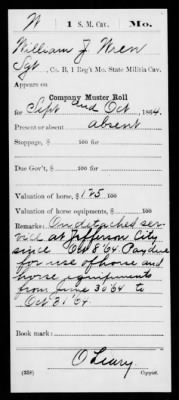 W 1 S. M. Cav. Mo.
William J Wren
Sgt, Co. B, 1 Reg't Mo. State Militia Cav.
Appears on
Company Muster Roll
for Sept and Oct, 1864.
Present or absent absent
Stoppage, $ 100
Due Gov't, $ 100
Valuation of horse, $125 100
Valuation of horse equipments, $ 100
Remarks: On detached ser-
vice at Jefferson City
since Oct 8 '64 Pay due
for use of horse and
horse equipments
from June 30 '64 to
Oct 31 '64.
Book mark:
O'Leary
(358) Copyist.